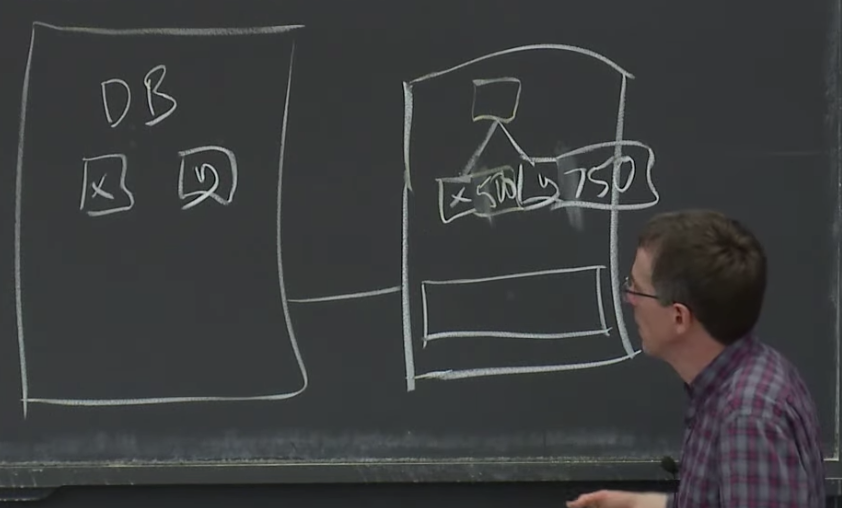 DB
x y
x 500 y 750